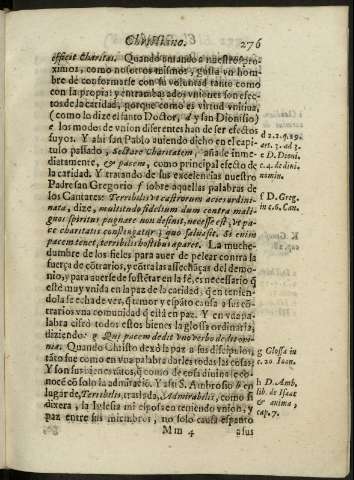 Christiano. 276
efficit Charitas. Quando amando a nuestros pro-
ximos, como nosotros mismos, gusta vn hom-
bre de conformarse con su voluntad tanto como
con la propia; y entrambas vniones son efec-
tos de la caridad, porque como es virtud vnitiua,
(como lo dize el santo Doctor, d y san Dionisio)
e los modos de vnion diferentes han de ser efectos
suyos. Y assi san Pablo auiendo dicho en el capi-
tulo passado, Sectare Charitatem, añade inme-
diatamente, & pacem, como principal efecto de
la caridad. Y tratando de sus excelencias nuestro
Padre san Gregorio f sobre aquellas palabras de
los Cantares: Terribilis vt castrorum acies ordi-
nata, dize, multitudo fidelium dum contra mali-
gnos spiritus pugnare non desinit, necesse est, vt pa-
ce charitatis constringatur; quo saluasit. Si enim
pacem tenet, terribilis hostibus aparet. La muche-
dumbre de los fieles para auer de pelear contra la
fuerça de cōtrarios, y cōtra las assechāças del demo-
nio, y para auerse de sustētar en la fé, es necessario q̄
esté muy vnida en la paz de la caridad, q̄ en tenien-
dola se echa de ver, q̄ temor y espāto causa a sus cō-
trarios vna comunidad q̄ está en paz. Y en vna pa-
labra cifrò todos estos bienes la glossa ordinaria,
diziendo: g Qui pacem dedit vno verbo dedit om-
nia. Quando Christo dexò la paz a sus discipulos,
tāto fue como en vna palabra darles todas las cosas;
Y son sus bienes tātos, q̄ como de cosa diuina se co-
nocē cō solo la admiraciō. Y assi S. Ambrosio h en
lugar de, Terribilis, traslada, Admirabilis, como si
dixera, la Iglesia mi esposa en teniendo vnion, y
paz entre sus miembros, no solo causa espanto
Mm 4 a sus
d 2.2.q.29.
art. 3. ad 3.
e D. Dioni.
c. 4. de diui-
nis nomin.
f D. Greg.
in c. 6. Can.
g Glossa in
c. 20. Ioan.
h D. Amb.
lib. de Isaac
& anima,
cap. 7.